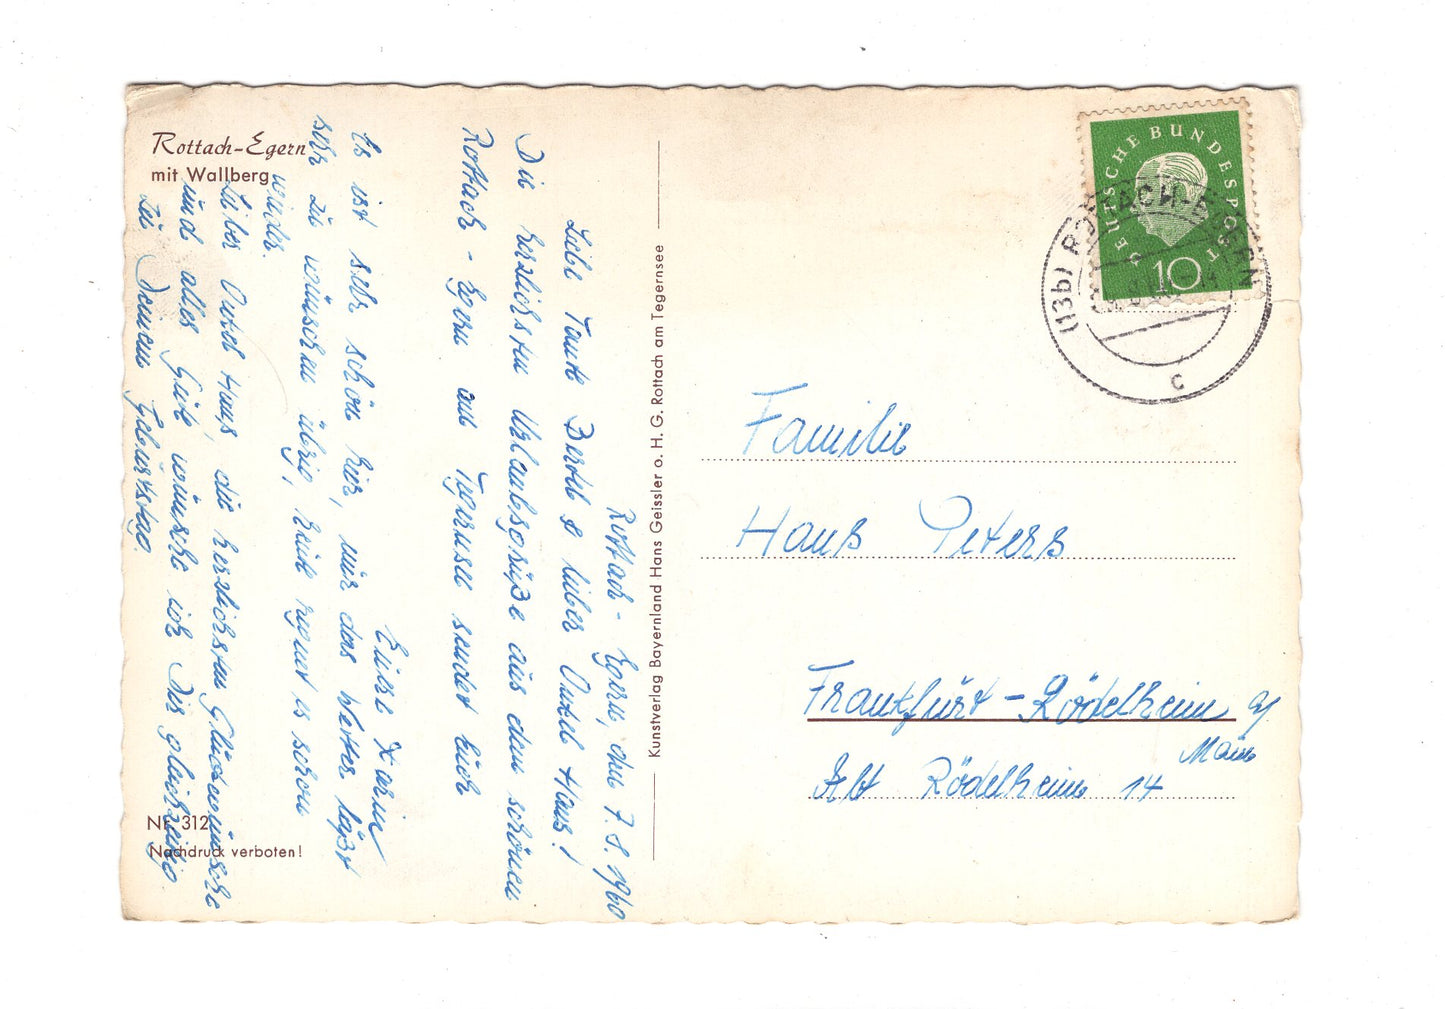 Rottach-Egern
mit Wallberg
Rottach-Egern, den 7.8.1960
Liebe Tante Bertel & lieber Onkel Hans!
Die herzlichsten Urlaubsgrüße aus dem schönen
Rottach-Egern am Tegernsee sendet Euch
Eure Karin
Es ist sehr schön hier, nur das Wetter läßt
sehr zu wünschen übrig, heute regnet es schon
wieder.
Lieber Onkel Hans, die herzlichsten Glückwünsche
und alles Gute wünsche ich Dir gleichzeitig
zu Deinem Geburtstag.
Nr. 312
Nachdruck verboten!
Kunstverlag Bayernland Hans Geissler o. H. G. Rottach am Tegernsee
DEUTSCHE BUNDESPOST
10
(13b) ROTTACH-EGERN
c
Familie
Hans Peters
Frankfurt-Rödelheim a/
Main
Alt Rödelheim 14